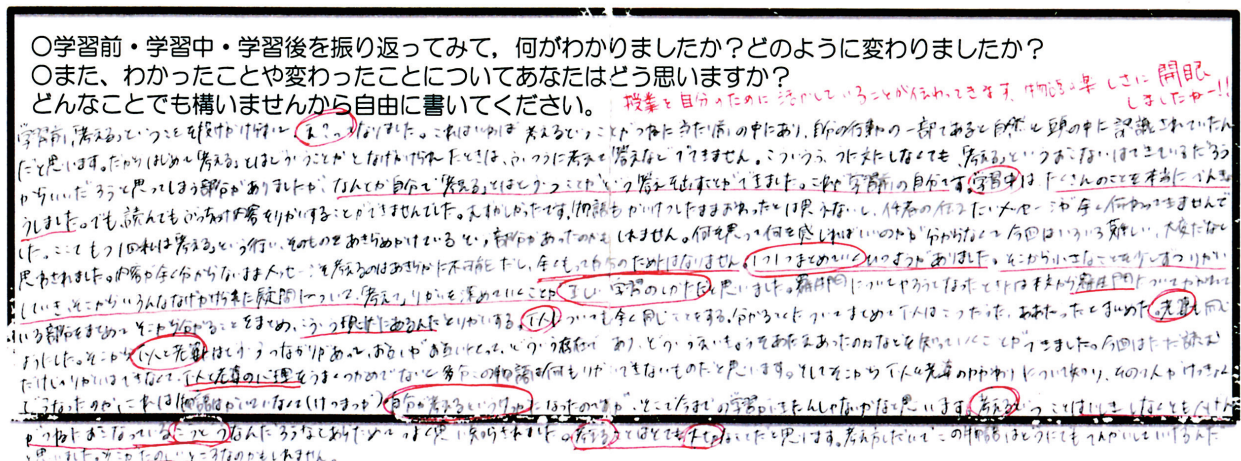 ○学習前・学習中・学習後を振り返ってみて，何がわかりましたか？どのように変わりましたか？
○また、わかったことや変わったことについてあなたはどう思いますか？
どんなことでも構いませんから自由に書いてください。
授業を自分のために活かしていることが伝わってきます。物語の楽しさに開眼
しましたかー!!
学習前、「考える」ということを投げかけられ、え?っとなりました。これはいわば考えるということがつねに当たり前の中にあり、自分の行動の一部であると自然と頭の中に認識されていたん
だと思います。だからはじめ「考える」とはどういうことかとなげかけられたときは、ふつうに考えて答えなどできません。こういうふうに文にしなくても、「考える」というおこないはできているだろう
からいいだろうと思ってしまう部分がありましたが、なんとか自分で「考える」とはどういうことかという答えを出すことができました。これが学習前の自分です。学習中はたくさんのことを本当にべんきょ
うしました。でも、読んでも
ことができませんでした。
した。ここでもう1回私は考えるという行い、そのものをあきらめかけているという部分があったのかもしれません。何を思って何を感じればいいのかが分からなくて今回はいろいろ難しい、大変だなと
思わされました。内容が全く分からないままメッセージを考えるのはあきらかに不可能だし、全くもって自分のためにはなりません。1つ1つまとめていくひつようがありました。そこから小さなことを少しずつりかい
していき、そこからいろんななげかけられた疑問について、「考えて」りかいを深めていくことが正しい学習のしかただと思いました。羅生門についてやろうとなったときは本文から羅生門についてかかれて
いる部分をまとめて、そこから分かることをまとめ、こういう現状にあるんだとりかいする。下人についても全く同じことをする。分かることについてまとめて下人はこうだった、ああだったとまとめた。老婆も同じ
ようにした。そこから下人と老婆はどういうつながりがあって、おたがいがお互いにとって、どういう存在であり、
ことができました。今回はただ読む
だけじゃりかいはできなくて、下人と老婆の心理をうまくつかめてないと多分この物語は何もりかいできないものだと思います。そしてそこから下人と老婆のかかわりについて
どうなったのか、これは物語はかいていなくて(けつまつが)自分で考えるというわけになったのですが、そこで今までの学習がいきたんじゃないかなと思います。考えるということはいしきしなくとも
がつねにおこなっている1つ1つなんだろうなとあらためてつよく思い知らされました。考えるってほとても大切なことだと思います。考え方しだいでこの物語はどうにでもてんかいしていけるんだ
と思いました。そこがたのしいところなのかもしれません。